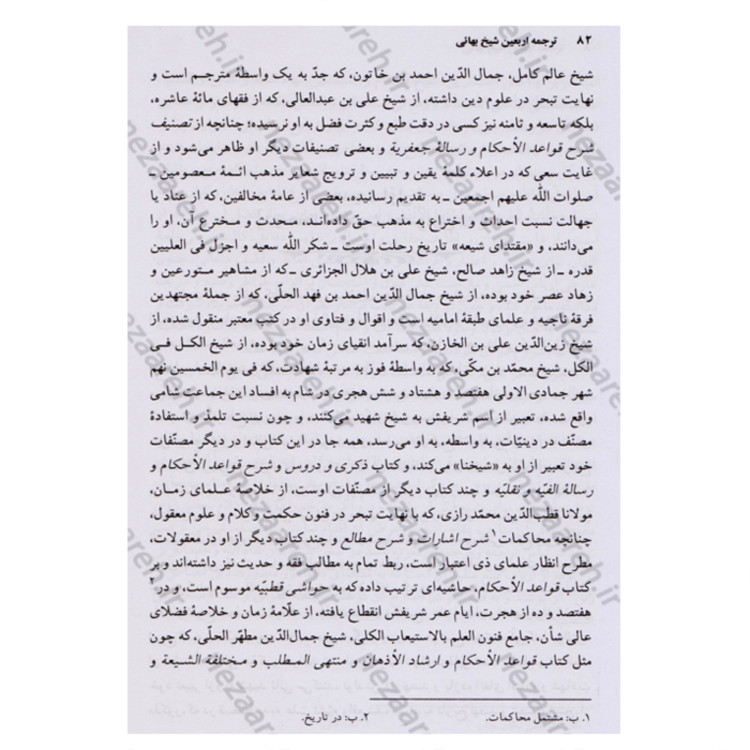 ۸۲ ترجمه اربعین شیخ بهائی
شیخ عالم کامل، جمال الدّین احمد بن خاتون، که جدّ به یک واسطهٔ مترجم است و
نهایت تبحر در علوم دین داشته، از شیخ علی بن عبدالعالی، که از فقهای مائة عاشره،
بلکه تاسعه و ثامنه نیز کسی در دقت طبع و کثرت فضل به او نرسیده؛ چنانچه از تصنیف
شرح قواعد الأحکام و رسالهٔ جعفریة و بعضی تصنیفات دیگر او ظاهر می‌شود و از
غایت سعی که در اعلاء کلمهٔ یقین و تبیین و ترویج شعایر مذهب ائمهٔ معصومین ـ
صلوات اللّه علیهم اجمعین ـ به تقدیم رسانیده، بعضی از عامهٔ مخالفین، که از عناد یا
جهالت نسبت احداث و اختراع به مذهب حقّ داده‌اند، محدث و مخترع آن، او را
می‌دانند، و «مقتدای شیعه» تاریخ رحلت اوست ـ شکر اللّه سعیه و اجزل فی العلیین
قدره ـ از شیخ زاهد صالح، شیخ علی بن هلال الجزائری ـ که از مشاهیر متورعین و
زهاد عصر خود بوده، از شیخ جمال الدّین احمد بن فهد الحلّی، که از جملهٔ مجتهدین
فرقهٔ ناجیه و علمای طبقهٔ امامیه است و اقوال و فتاوی او در کتب معتبر منقول شده، از
شیخ زین‌الدّین علی بن الخازن، که سرآمد اتقیای زمان خود بوده، از شیخ الکل فی
الکل، شیخ محمّد بن مکّی، که به واسطهٔ فوز به مرتبهٔ شهادت، که فی یوم الخمسین نهم
شهر جمادی الاولی هفتصد و هشتاد و شش هجری در شام به افساد این جماعت شامی
واقع شده، تعبیر از اسم شریفش به شیخ شهید می‌کنند، و چون نسبت تلمذ و استفادهٔ
مصنّف در دینیّات، به واسطه، به او می‌رسد، همه جا در این کتاب و در دیگر مصنّفات
خود تعبیر از او به «شیخنا» می‌کند، و کتاب ذکری و دروس و شرح قواعد الأحکام و
رسالهٔ الفیّه و نفلیّه و چند کتاب دیگر از مصنّفات اوست، از خلاصهٔ علمای زمان،
مولانا قطب‌الدّین محمّد رازی، که با نهایت تبحر در فنون حکمت و کلام و علوم معقول،
چنانچه محاکمات۱ شرح اشارات و شرح مطالع و چند کتاب دیگر از او در معقولات،
مطرح انظار علمای ذی اعتبار است، ربط تمام به مطالب فقه و حدیث نیز داشته‌اند و بر
کتاب قواعد الأحکام، حاشیه‌ای ترتیب داده که به حواشی قطبیّه موسوم است، و در۲
هفتصد و ده از هجرت، ایام عمر شریفش انقطاع یافته، از علّامهٔ زمان و خلاصهٔ فضلای
عالی شأن، جامع فنون العلم بالاستیعاب الکلی، شیخ جمال‌الدّین مطهّر الحلّی، که چون
مثل کتاب قواعد الأحکام و ارشاد الأذهان و منتهی المطلب و مختلفة الشیعة و
۱. ب: مشتمل محاکمات. ۲. ب: در تاریخ.
nezaareh.ir